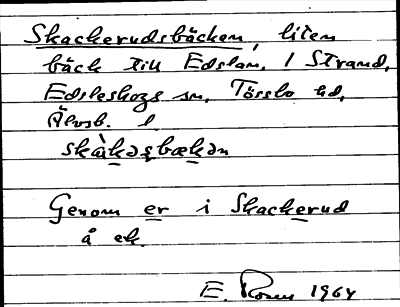 Skackerudsbäcken, liten
bäck till Edslan. 1 Strand,
Edsleskogs sn. Tössbo hd,
Älvsb. l.
skàkəsbækən
Genom er i Skackerud
å ek.
E. Rosen 1964